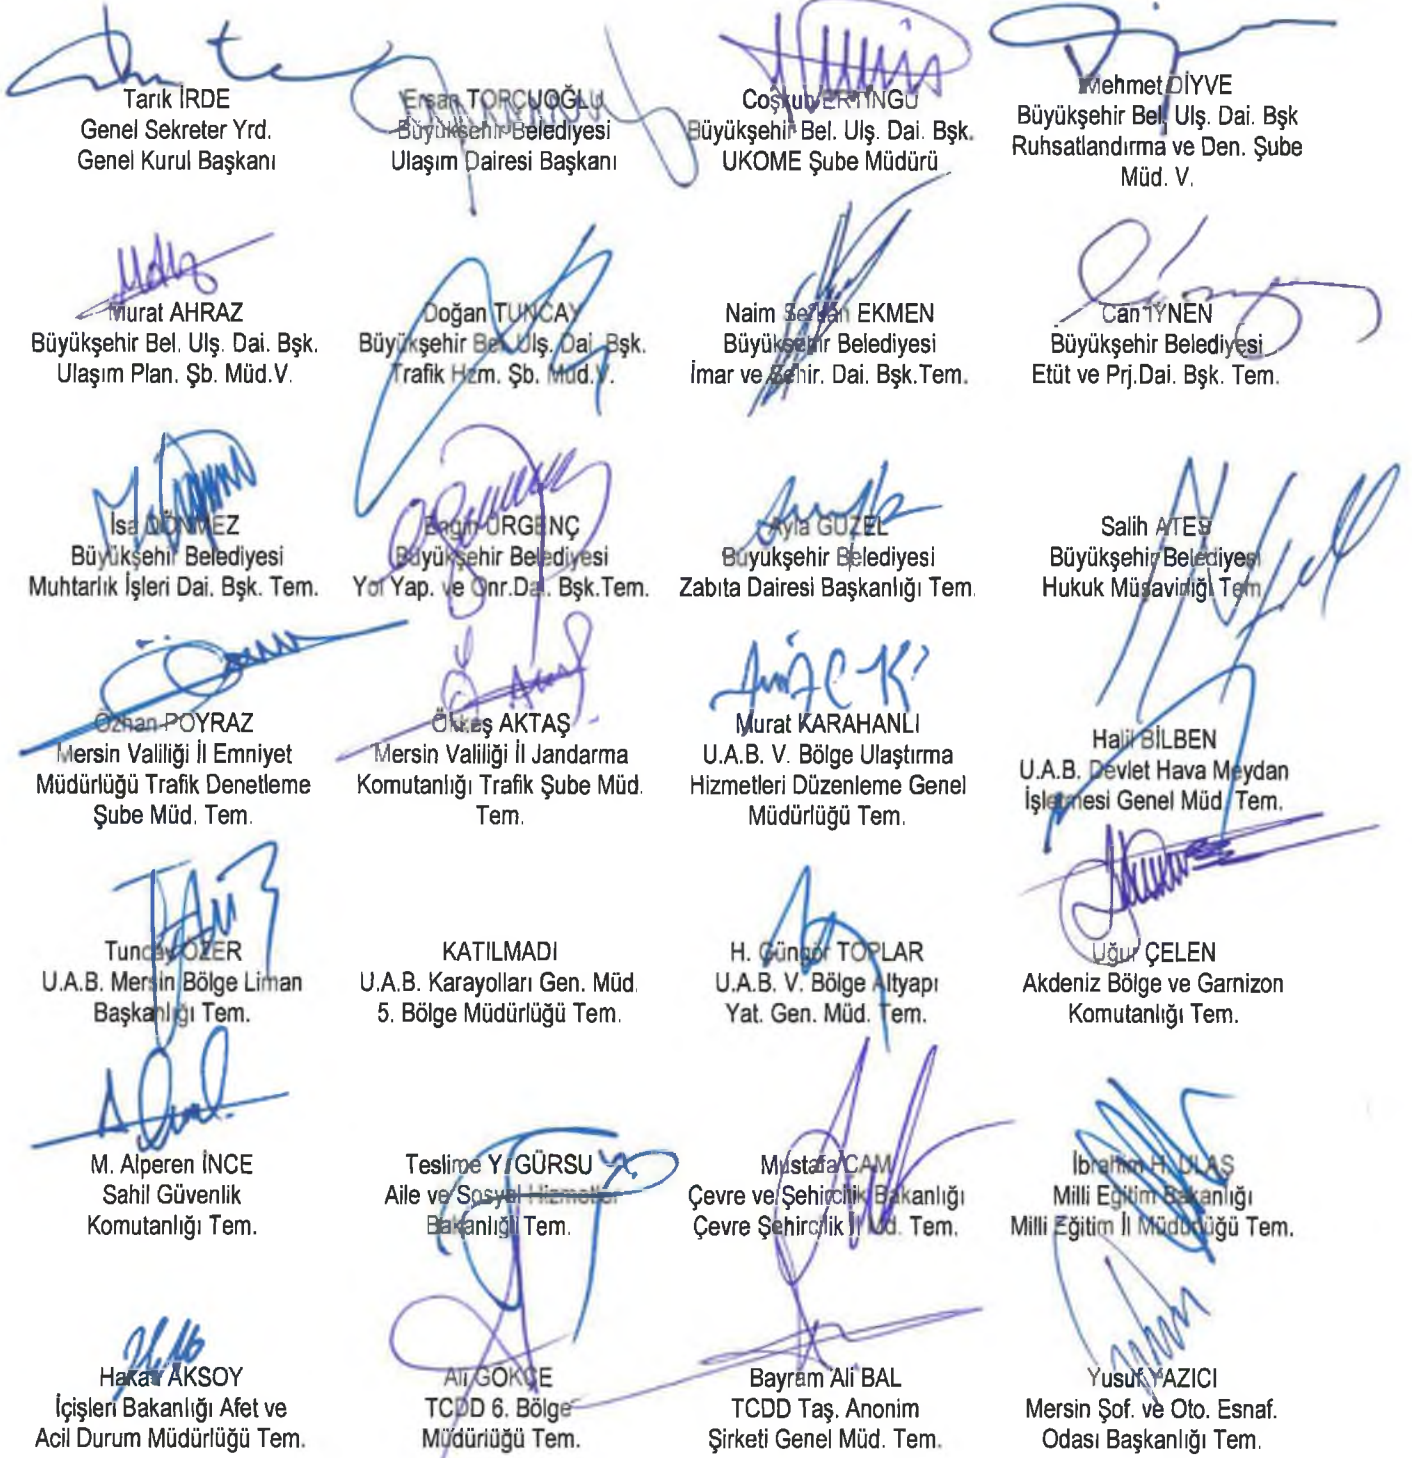 Tarık İRDE
Genel Sekreter Yrd.
Genel Kurul Başkanı
Ersan TOPÇUOĞLU
Büyükşehir Belediyesi
Ulaşım Dairesi Başkanı
Coşkun
Büyükşehir Bel. Ulş. Dai. Bşk.
UKOME Şube Müdürü
Mehmet DİYVE
Büyükşehir Bel. Ulş. Dai. Bşk
Ruhsatlandırma ve Den. Şube
Müd. V.
Murat AHRAZ
Büyükşehir Bel. Ulş. Dai. Bşk.
Ulaşım Plan. Şb. Müd.V.
Doğan TUNCAY
Büyükşehir Bel. Ulş. Dai. Bşk.
Trafik Hzm. Şb. Müd.V.
Naim Serkan EKMEN
Büyükşehir Belediyesi
İmar ve Şehir. Dai. Bşk.Tem.
Can İYNEN
Büyükşehir Belediyesi
Etüt ve Prj.Dai. Bşk. Tem.
İsa DÖNMEZ
Büyükşehir Belediyesi
Muhtarlık İşleri Dai. Bşk. Tem.
Engin ÜRGENÇ
Büyükşehir Belediyesi
Yol Yap. ve Onr.Dai. Bşk.Tem.
Ayla GÜZEL
Büyükşehir Belediyesi
Zabıta Dairesi Başkanlığı Tem.
Salih ATEŞ
Büyükşehir Belediyesi
Hukuk Müşavirliği Tem.
Özhan POYRAZ
Mersin Valiliği İl Emniyet
Müdürlüğü Trafik Denetleme
Şube Müd. Tem.
Ökkeş AKTAŞ
Mersin Valiliği İl Jandarma
Komutanlığı Trafik Şube Müd.
Tem.
Murat KARAHANLI
U.A.B. V. Bölge Ulaştırma
Hizmetleri Düzenleme Genel
Müdürlüğü Tem.
Halil BİLBEN
U.A.B. Devlet Hava Meydan
İşletmesi Genel Müd. Tem.
Tuncay ÖZER
U.A.B. Mersin Bölge Liman
Başkanlığı Tem.
KATILMADI
U.A.B. Karayolları Gen. Müd.
5. Bölge Müdürlüğü Tem.
H. Güngör TOPLAR
U.A.B. V. Bölge Altyapı
Yat. Gen. Müd. Tem.
Uğur ÇELEN
Akdeniz Bölge ve Garnizon
Komutanlığı Tem.
M. Alperen İNCE
Sahil Güvenlik
Komutanlığı Tem.
Teslime Y. GÜRSU
Aile ve Sosyal Hizmetler
Bakanlığı Tem.
Mustafa CAM
Çevre ve Şehircilik Bakanlığı
Çevre Şehircilik İl Md. Tem.
İbrahim H. ULAŞ
Milli Eğitim Bakanlığı
Milli Eğitim İl Müdürlüğü Tem.
Hakan AKSOY
İçişleri Bakanlığı Afet ve
Acil Durum Müdürlüğü Tem.
Ali GÖKÇE
TCDD 6. Bölge
Müdürlüğü Tem.
Bayram Ali BAL
TCDD Taş. Anonim
Şirketi Genel Müd. Tem.
Yusuf YAZICI
Mersin Şof. ve Oto. Esnaf.
Odası Başkanlığı Tem.